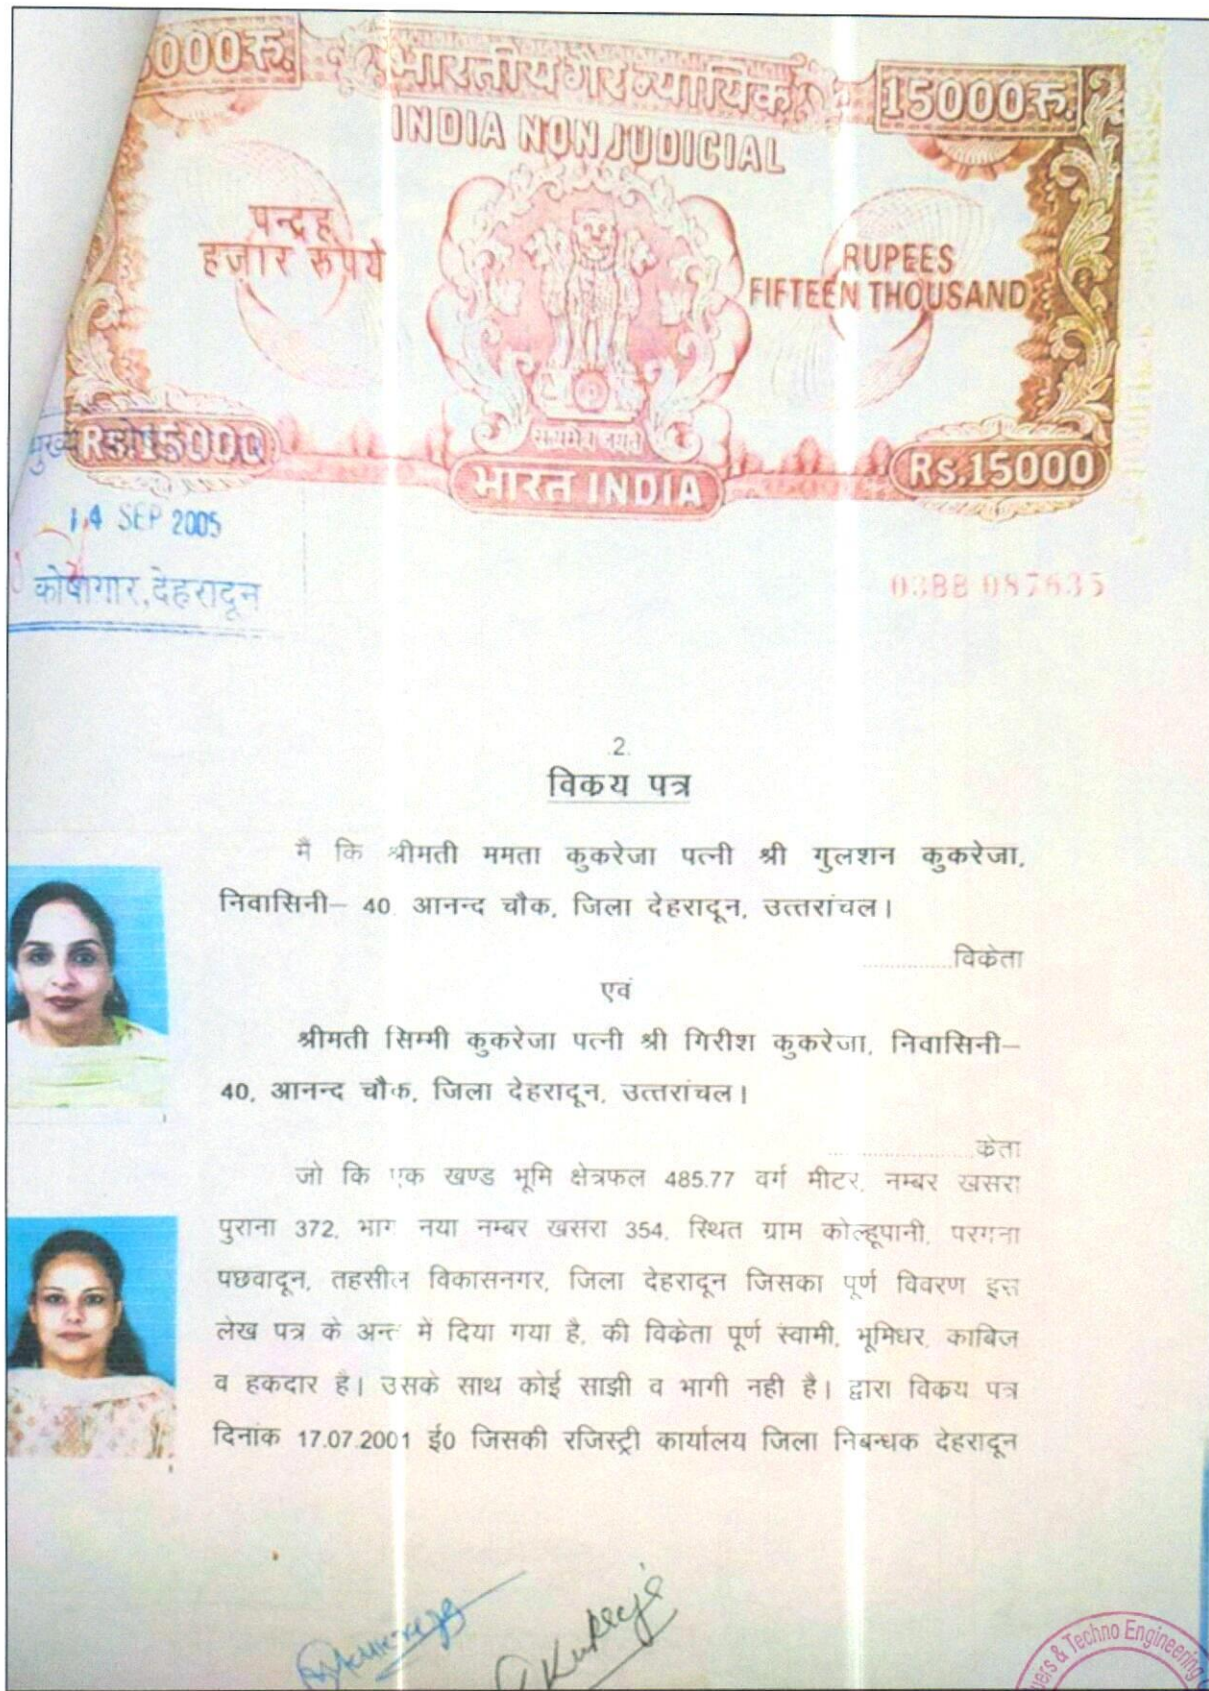 000रु.
भारतीय गैर न्यायिक
15000रु.
INDIA NON JUDICIAL
पन्द्रह
हज़ार रुपये
RUPEES
FIFTEEN THOUSAND
सत्यमेव जयते
Rs.15000
Rs.15000
भारत INDIA
मुख्य
14 SEP 2005
कोषागार, देहरादून
03BB 087635
.2.
विकय पत्र
मैं कि श्रीमती ममता कुकरेजा पत्नी श्री गुलशन कुकरेजा,
निवासिनी– 40, आनन्द चौक, जिला देहरादून, उत्तरांचल।
..............विकेता
एवं
श्रीमती सिम्मी कुकरेजा पत्नी श्री गिरीश कुकरेजा, निवासिनी–
40, आनन्द चौक, जिला देहरादून, उत्तरांचल।
......................केता
जो कि एक खण्ड भूमि क्षेत्रफल 485.77 वर्ग मीटर, नम्बर खसरा
पुराना 372, भाग नया नम्बर खसरा 354, स्थित ग्राम कोल्हूपानी, परगना
पछवादून, तहसील विकासनगर, जिला देहरादून जिसका पूर्ण विवरण इस
लेख पत्र के अन्त में दिया गया है, की विकेता पूर्ण स्वामी, भूमिधर, काबिज
व हकदार है। उसके साथ कोई साझी व भागी नही है। द्वारा विकय पत्र
दिनांक 17.07.2001 ई0 जिसकी रजिस्ट्री कार्यालय जिला निबन्धक देहरादून
Kukreja
& Techno Engineering